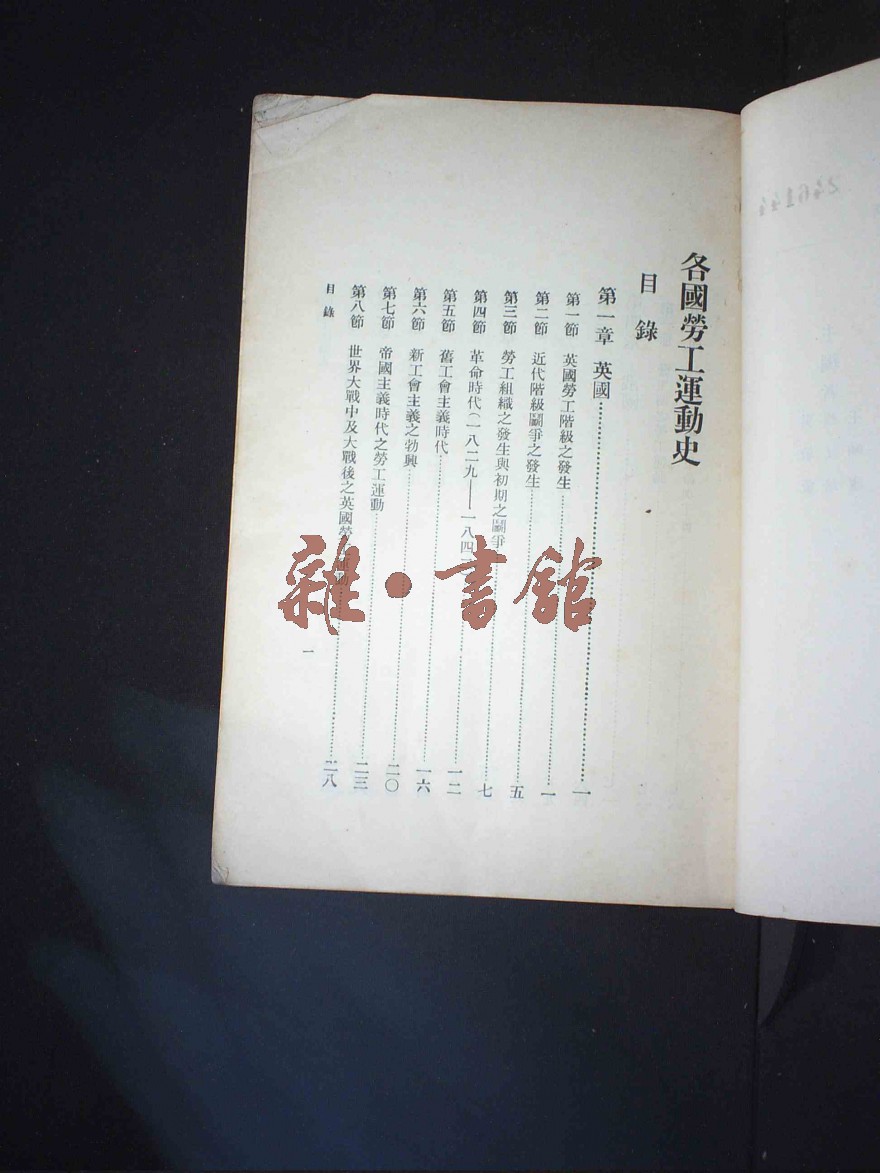 各國勞工運動史
目錄
第一章 英國……一
第一節 英國勞工階級之發生……一
第二節 近代階級鬭爭之發生……五
第三節 勞工組織之發生與初期之鬭爭……七
第四節 革命時代(一八二九——一八四……一二
第五節 舊工會主義時代……一六
第六節 新工會主義之勃興……二〇
第七節 帝國主義時代之勞工運動……二三
第八節 世界大戰中及大戰後之英國勞工運動……二八
目錄
一
雜·書館